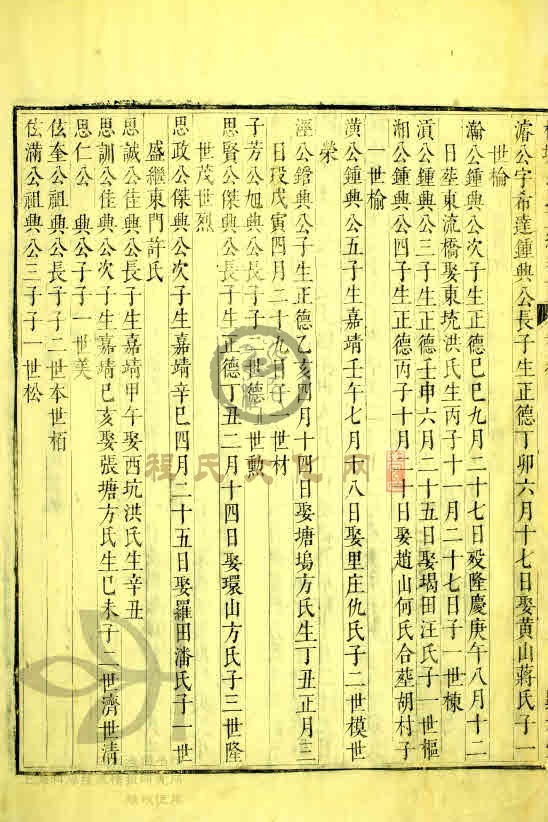 濬公字希達鍾典公長子生正德丁卯六月十七日娶黄山蔣氏子一
世楡
瀚公鍾典公次子生正德己巳九月二十七日殁隆慶庚午八月十二
日塟東流橋娶東坑洪氏生丙子十一月二十七日子一世棟
湏公鍾典公三子生正德壬申六月二十五日娶堨田汪氏子一世樞
湘公鍾典公四子生正德丙子十月十日娶趙山何氏合塟胡村子
一世楡
潢公鍾典公五子生嘉靖壬午七月十八日娶里庄仇氏子二世模世
榮
淫公鎧典公子生正德乙亥四月十四日娶塘塢方氏生丁丑正月三
日殁戊寅四月二十九日子一世材
子芳公旭典公長子子二世德世勲
思賢公傑典公長子生正德丁丑二月十四日娶環山方氏子三世隆
世茂世烈
思政公傑典公次子生嘉靖辛巳四月二十五日娶羅田潘氏子一世
盛繼東門許氏
思誠公佳典公長子生嘉靖甲午娶西坑洪氏生辛丑
思訓公佳典公次子生嘉靖己亥娶張塘方氏生己未子二世濟世清
思仁公 典公子子一世美
伭奎公祖典公長子子二世本世栢
伭滿公祖典公三子子一世松
程氏文化网